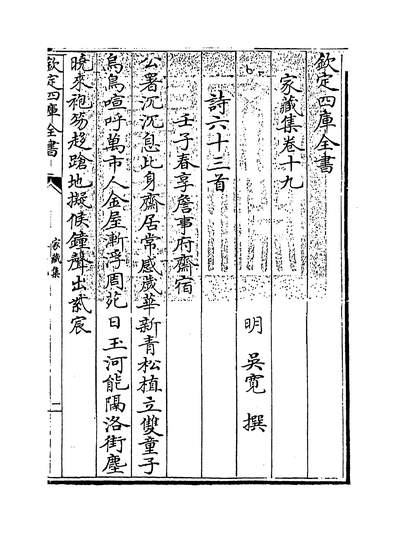 欽定四庫全書
家藏集卷十九
明 吳寛 撰
詩六十三首
壬子春享詹事府齋宿
公署沉沉息此身齋居常感歲華新青松植立雙童子
烏鳥喧呼萬市人金屋漸浮周苑日玉河能隔洛街塵
曉來袍笏趍蹌地擬候鐘聲出紫宸
欽定四庫全書
家藏集
一